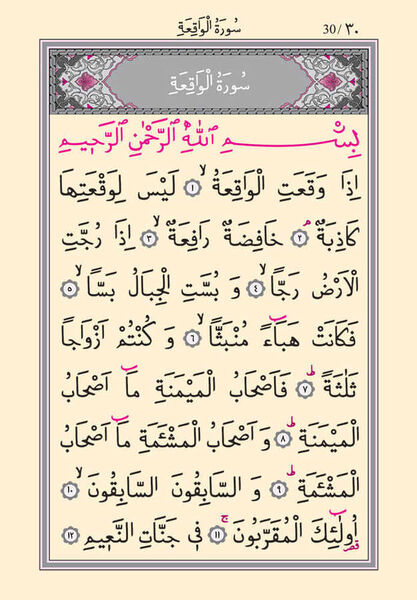 سُورَةُ الْوَاقِعَةِ 30/٣٠
سُورَةُ الْوَاقِعَةِ
بِسْمِ اللّٰهِ الرَّحْمٰنِ الرَّحِيمِ
اِذَا وَقَعَتِ الْوَاقِعَةُۙ ﴿١﴾ لَيْسَ لِوَقْعَتِهَا
كَاذِبَةٌۢ ﴿٢﴾ خَافِضَةٌ رَافِعَةٌۙ ﴿٣﴾ اِذَا رُجَّتِ
الْاَرْضُ رَجًّاۙ ﴿٤﴾ وَ بُسَّتِ الْجِبَالُ بَسًّاۙ ﴿٥﴾
فَكَانَتْ هَبَٓاءً مُنْبَثًّاۙ ﴿٦﴾ وَ كُنْتُمْ اَزْوَاجًا
ثَلٰثَةًؕ ﴿٧﴾ فَاَصْحَابُ الْمَيْمَنَةِ مَٓا اَصْحَابُ
الْمَيْمَنَةِؕ ﴿٨﴾ وَ اَصْحَابُ الْمَشْـَٔمَةِ مَٓا اَصْحَابُ
الْمَشْـَٔمَةِؕ ﴿٩﴾ وَ السَّابِقُونَ السَّابِقُونَۙ ﴿١٠﴾
اُو۬لٰٓئِكَ الْمُقَرَّبُونَۚ ﴿١١﴾ فِي جَنَّاتِ النَّعِيمِ ﴿١٢﴾